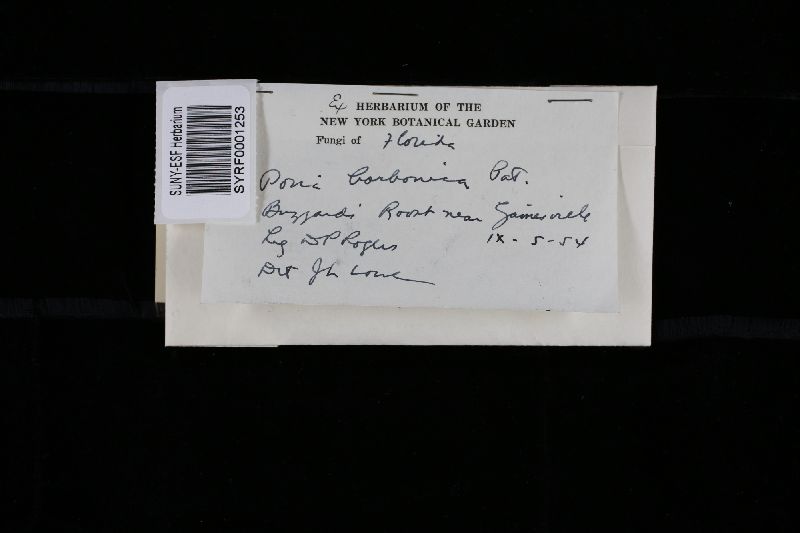 SUNY-ESF Herbarium
SYRF0001253
Ex HERBARIUM OF THE
NEW YORK BOTANICAL GARDEN
Fungi of Florida
Poria borbonica Pat.
Buzzards Roost near Gainesville
Leg DP Rogers IX-5-54
Det JL Lowe